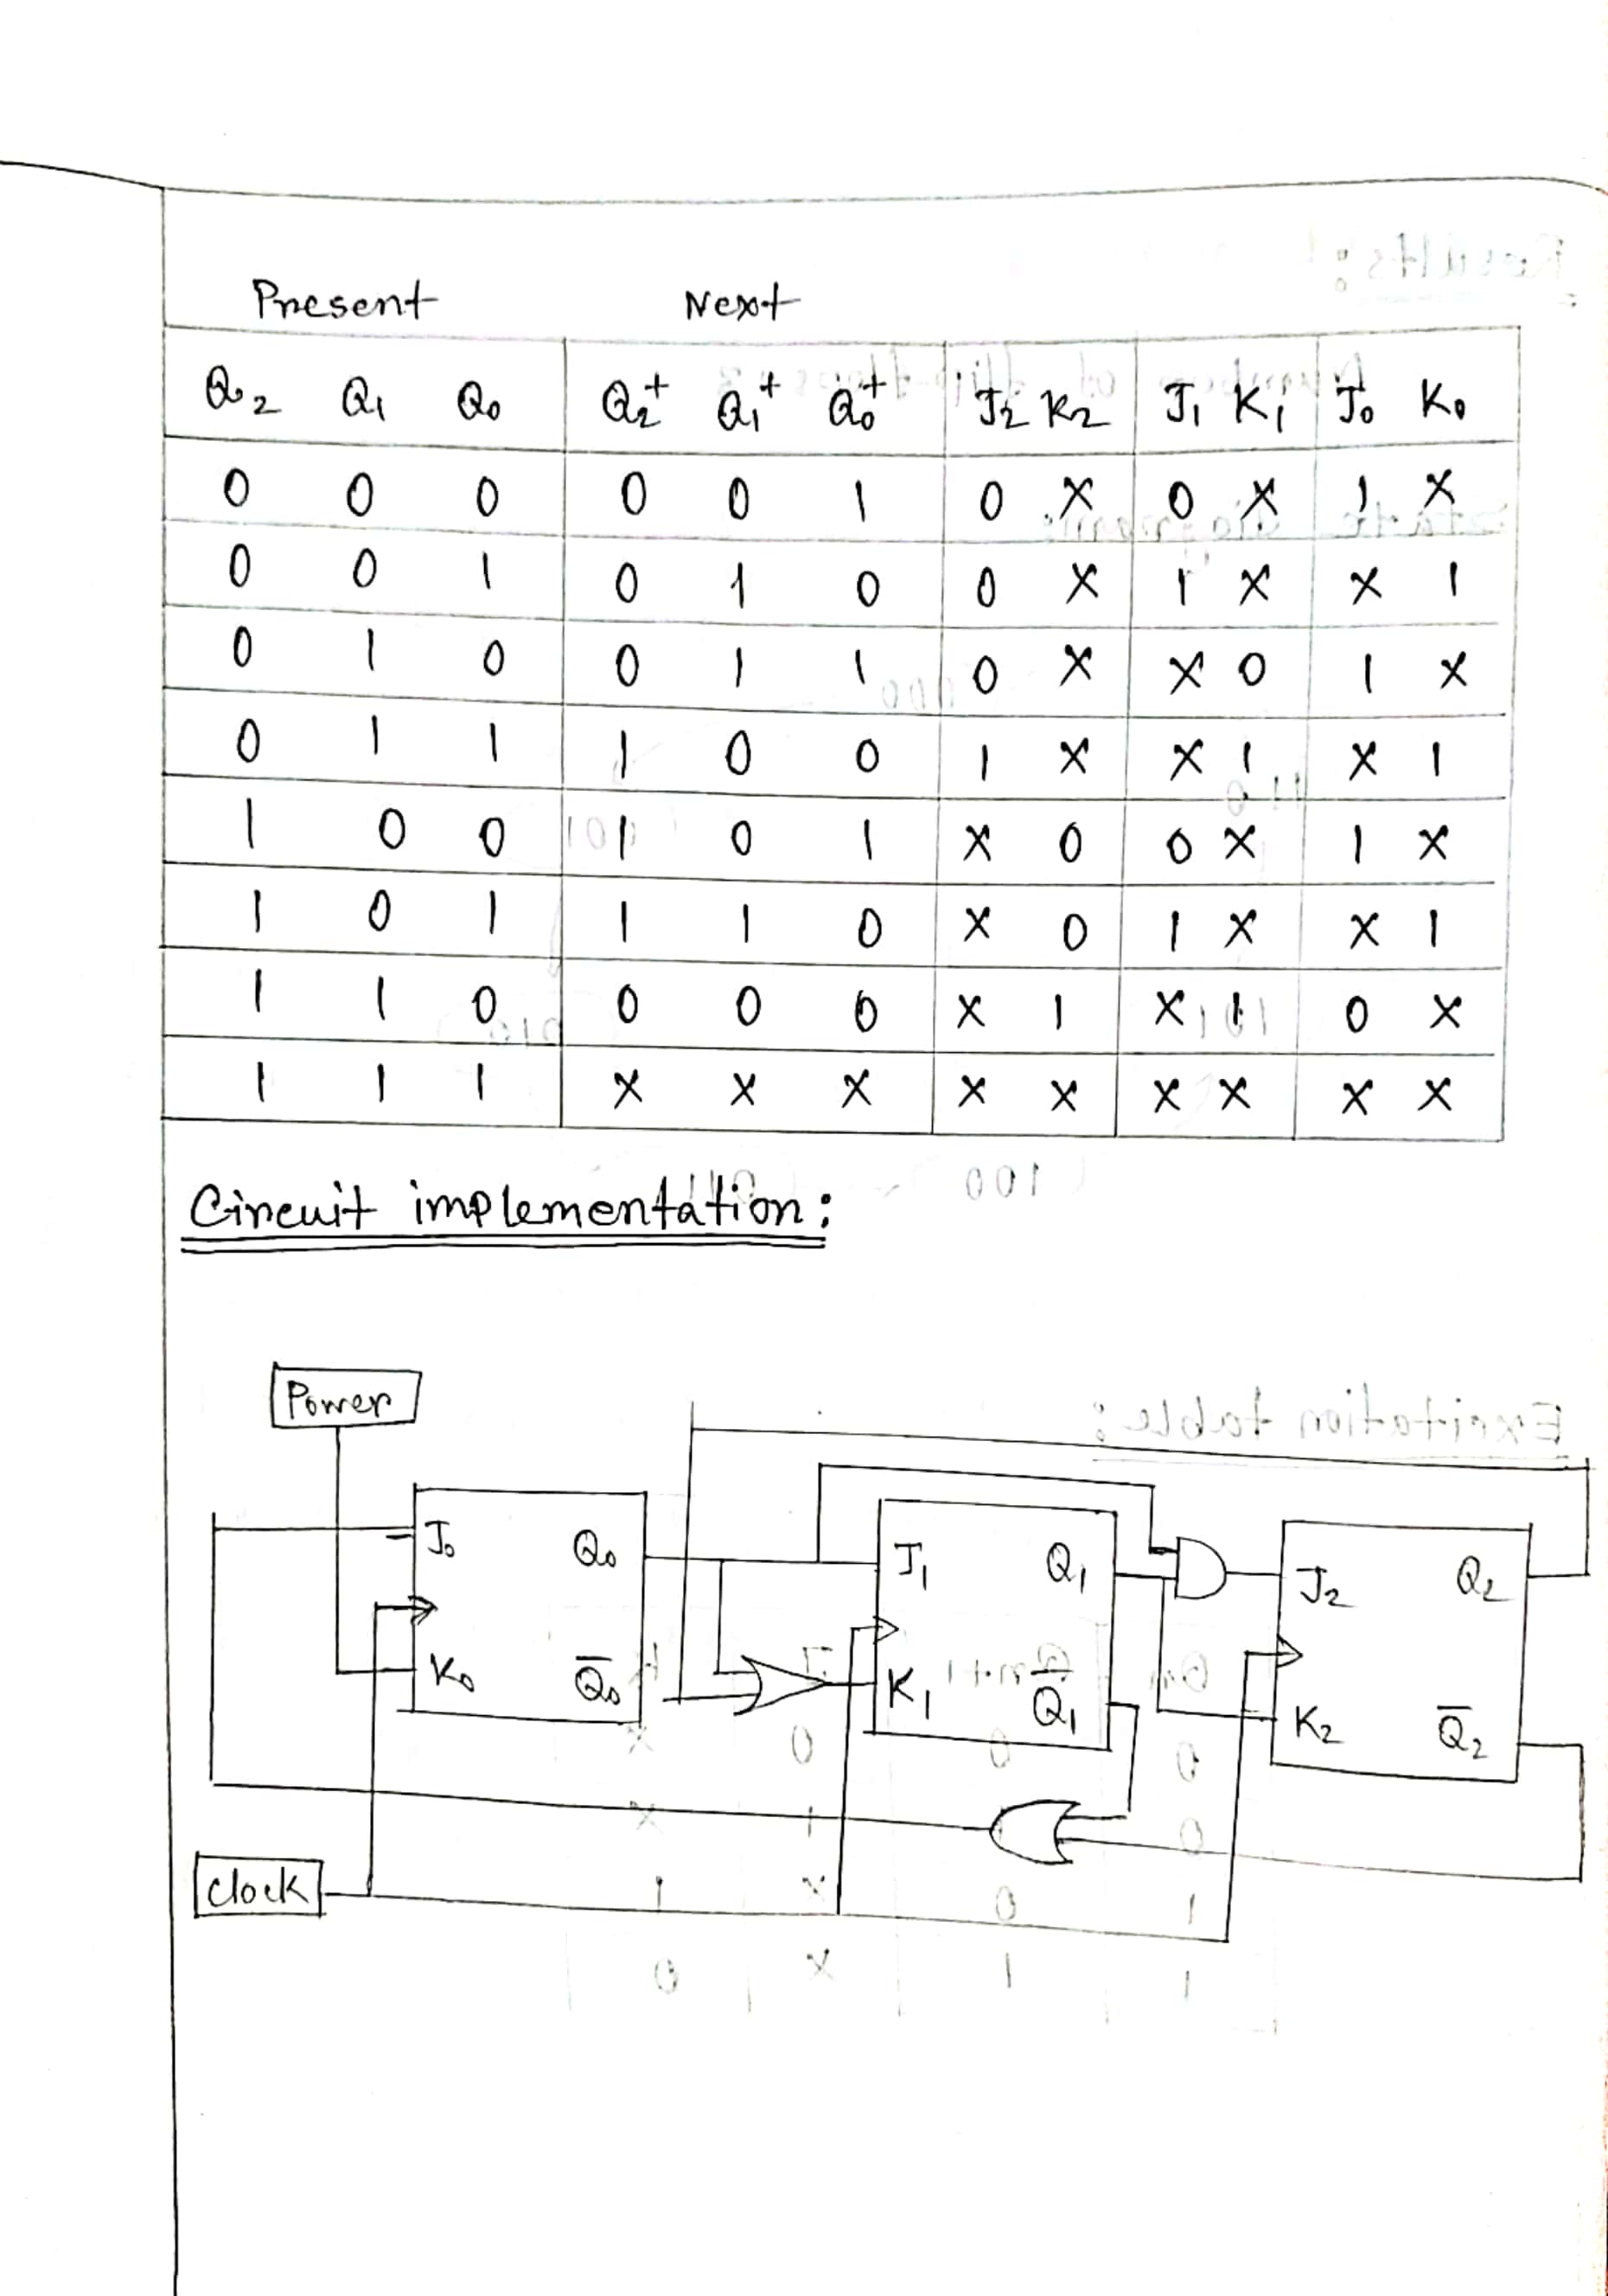 Present Next
Q2 Q1 Q0 Q2+ Q1+ Q0+ J2 K2 J1 K1 J0 K0
0 0 0 0 0 1 0 X 0 X 1 X
0 0 1 0 1 0 0 X 1 X X 1
0 1 0 0 1 1 0 X X 0 1 X
0 1 1 1 0 0 1 X X 1 X 1
1 0 0 1 0 1 X 0 0 X 1 X
1 0 1 1 1 0 X 0 1 X X 1
1 1 0 0 0 0 X 1 X 1 0 X
1 1 1 X X X X X X X X X
Circuit implementation:
Power
J0 Q0 J1 Q1 J2 Q2
K0 Q̅0 K1 Q̅1 K2 Q̅2
Clock